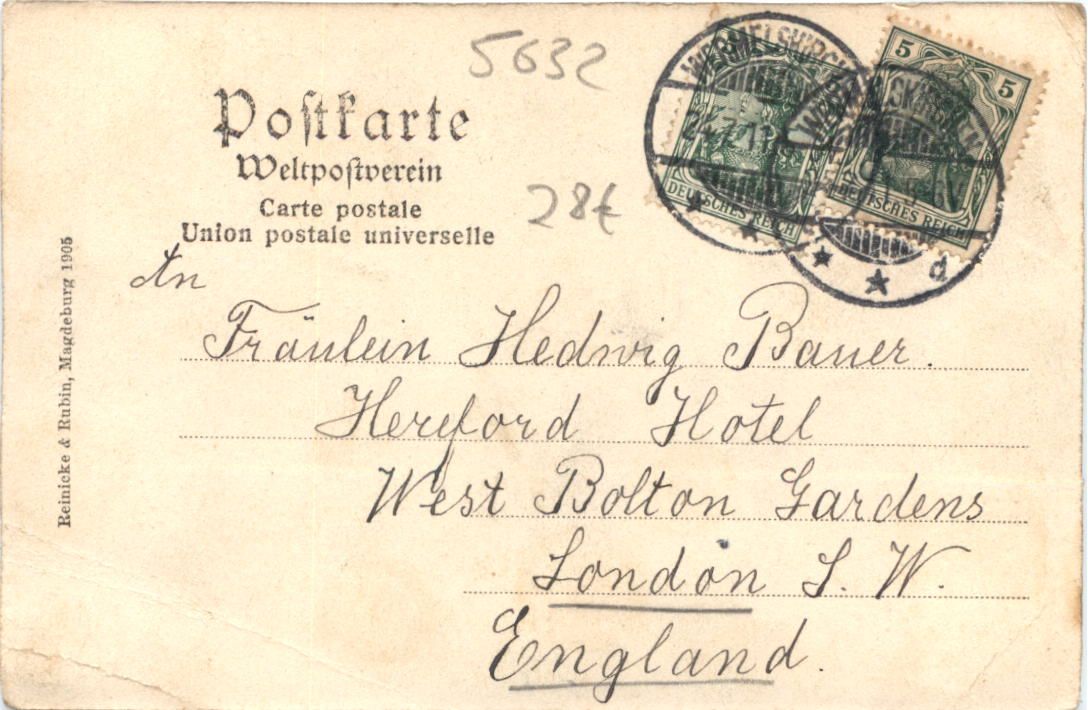 5632
Postkarte
Weltpostverein
28€
Carte postale
Union postale universelle
An
Fräulein Hedwig Bauer.
Hereford Hotel
West Bolton Gardens
London S. W.
England.
Reinicke & Rubin, Magdeburg 1905
WERMELSKIRCHEN
d
5 5
DEUTSCHES REICH
DEUTSCHES REICH